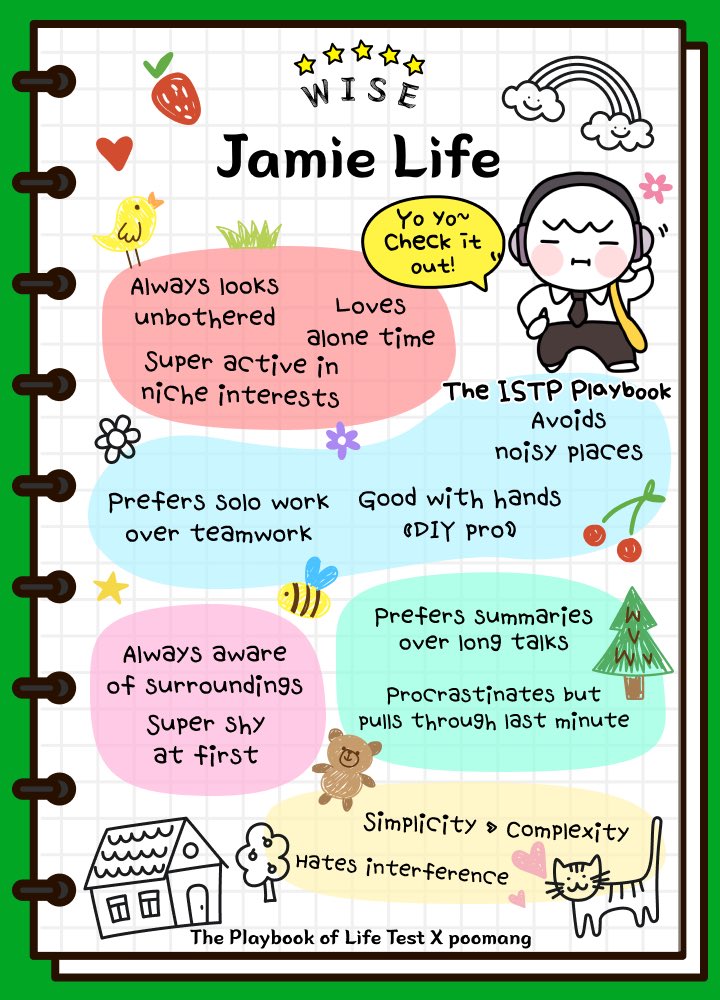 WISE
Jamie Life
Yo Yo~
Check it
out!
Always looks
unbothered
Loves
alone time
Super active in
niche interests
The ISTP Playbook
Avoids
noisy places
Prefers solo work
over teamwork
Good with hands
《DIY pro》
Prefers summaries
over long talks
Always aware
of surroundings
Procrastinates but
pulls through last minute
Super shy
at first
Simplicity » Complexity
Hates interference
The Playbook of Life Test X poomang